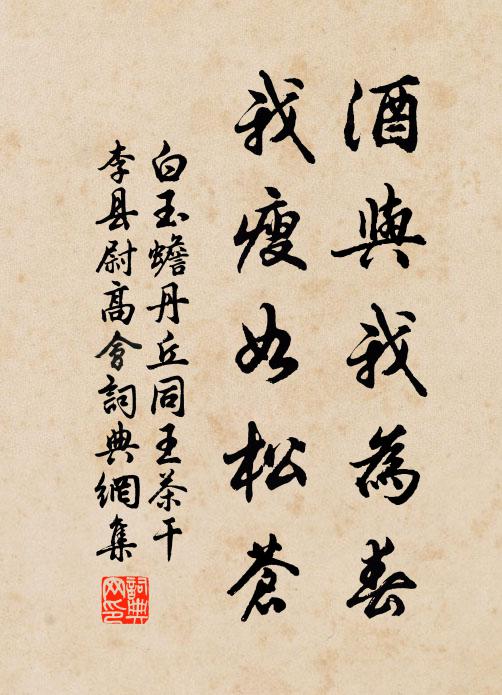 酒與我為春
我瘦如松蒼
白玉蟾丹丘同王茶干
李县尉高會詞典網集
詞典網印